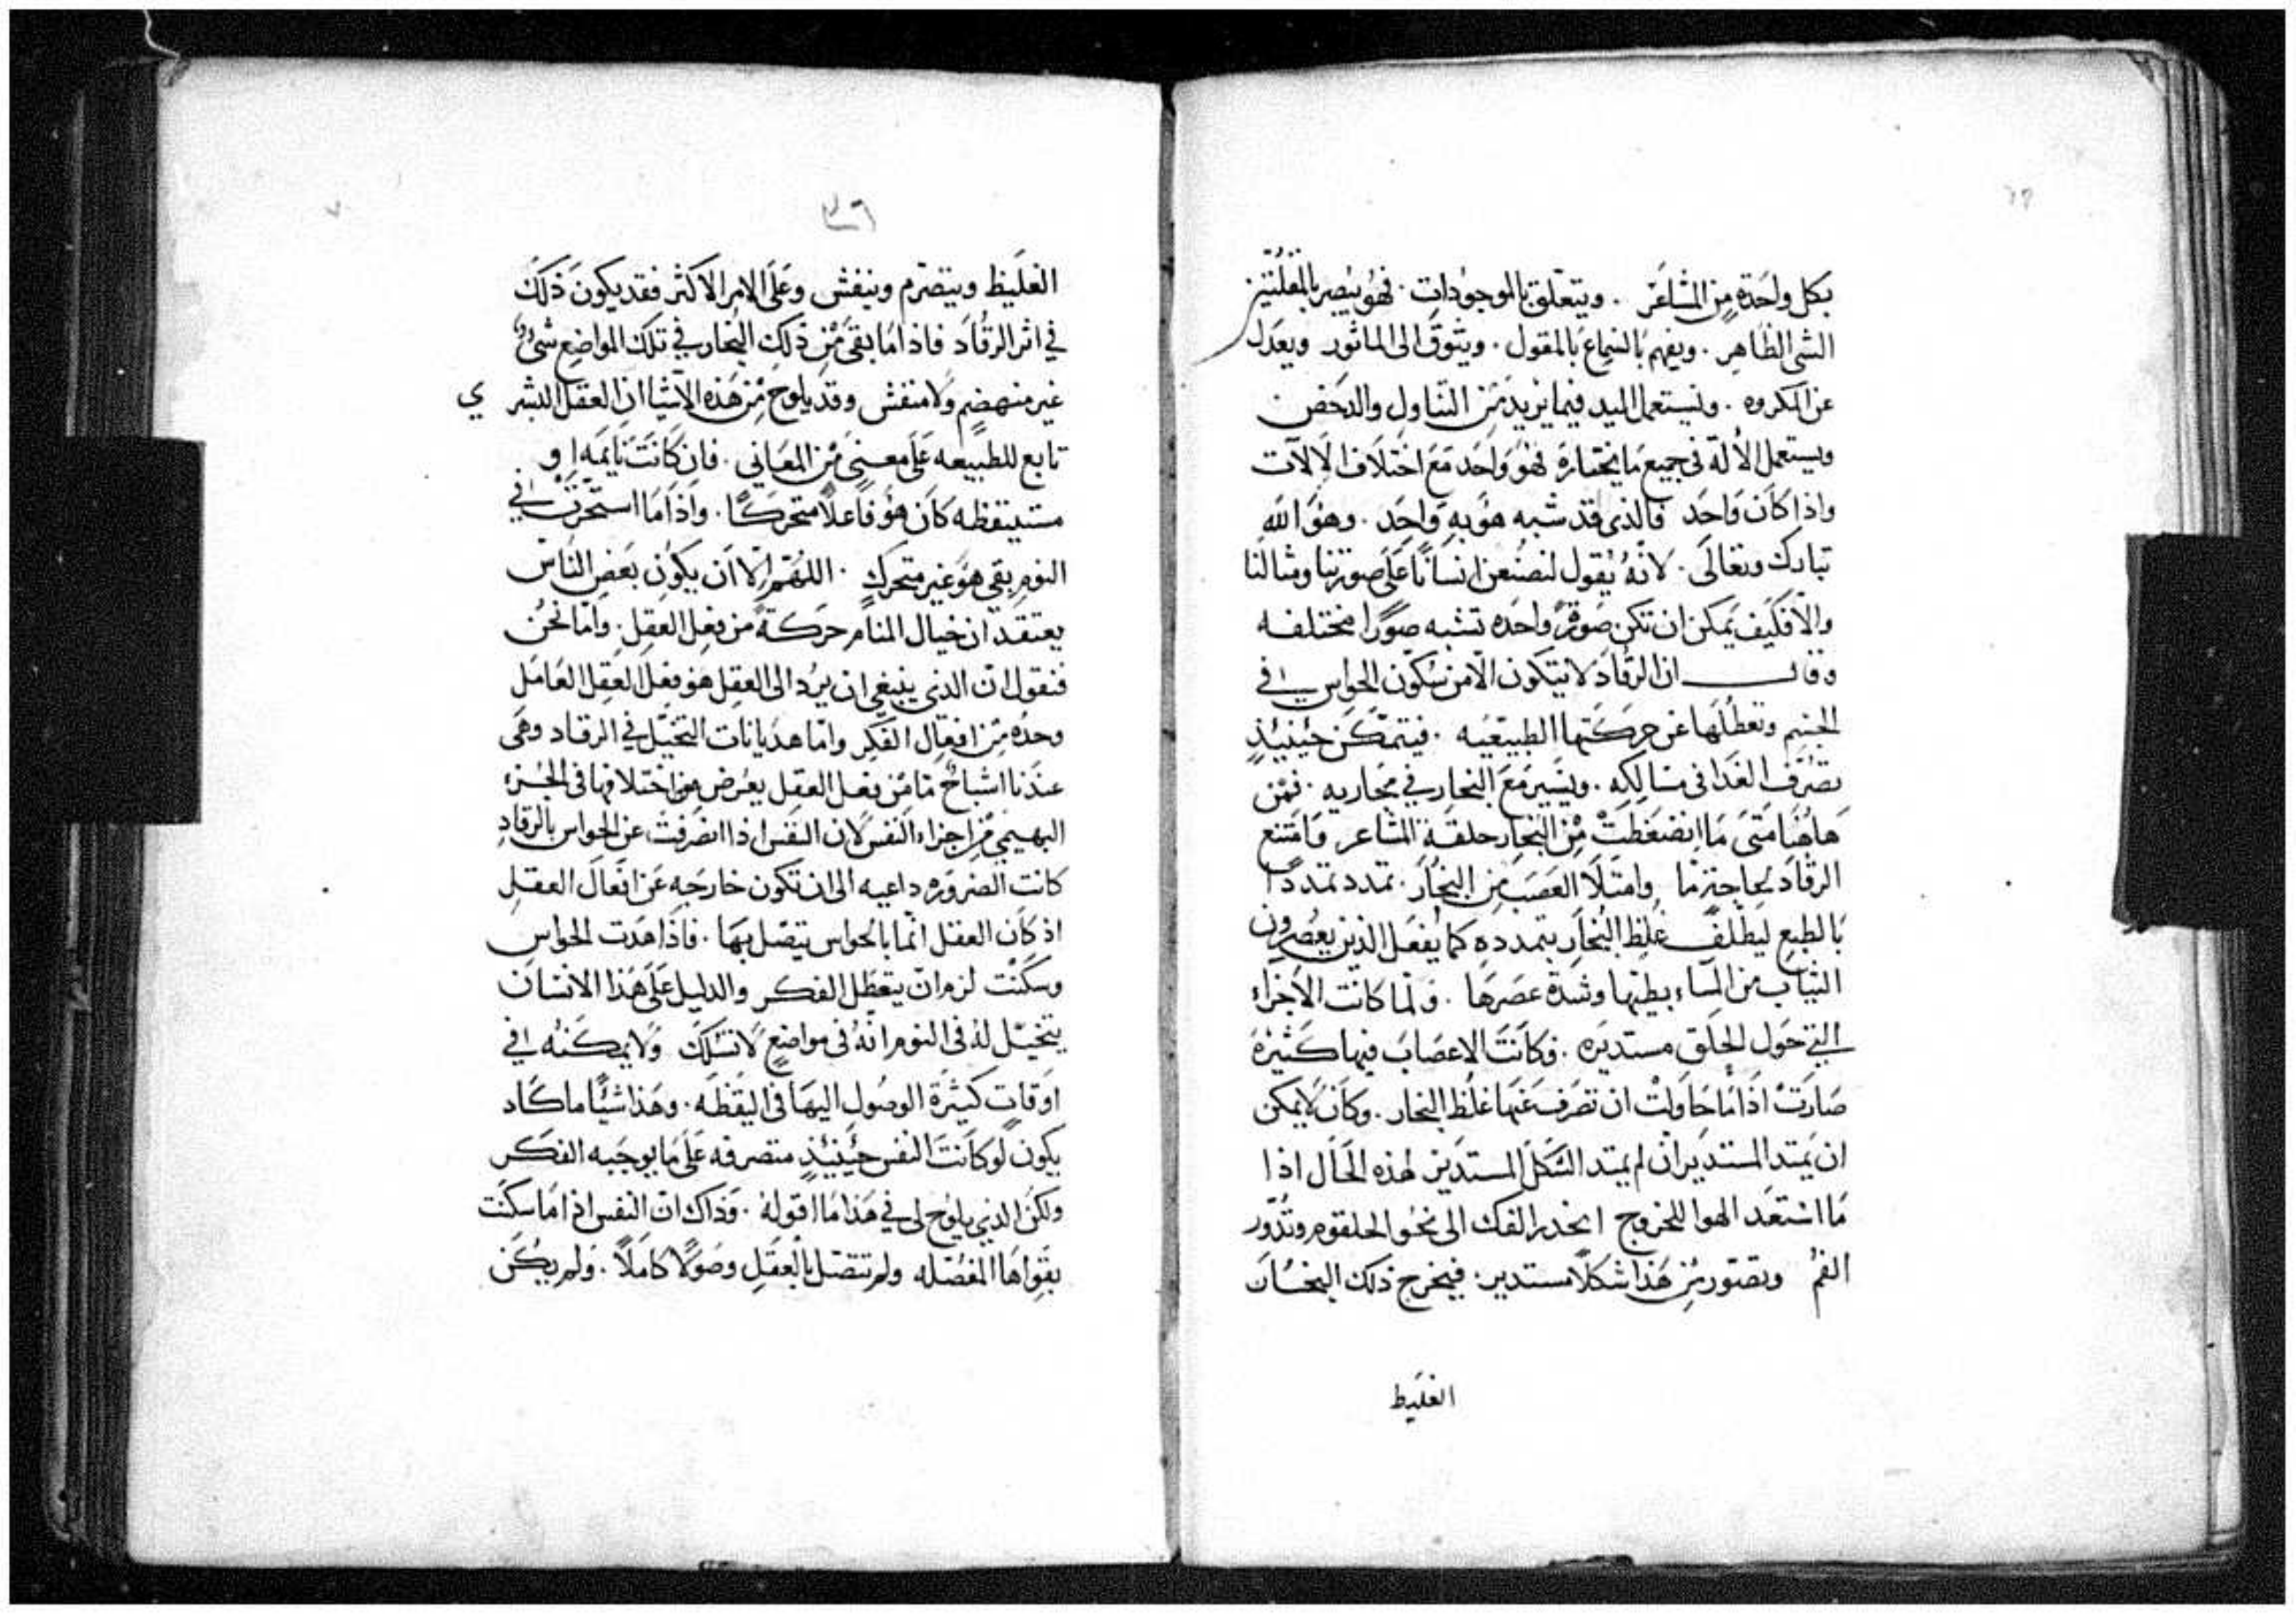 بكل واحدة من المشاعر . ويتعلق بالموجودات . فهو يبصر بالمقلتين
الشي الظاهر . ويفهم بالسماع بالمقول . ويتوق الى الماثور ويعدل
عن المكروه . ويستعمل اليد فيما يريد من التناول والدحض
ويستعمل الألة في جميع ما يختاره فهو واحد مع اختلاف الالات
واذا كان واحد فالذى قد شبه هو به واحد . وهو الله
تبارك وتعالى . لانه يقول لنصنعن انسانًا على صورتنا ومثالنا
والا فكيف يمكن ان تكن صورة واحده تشبه صورًا مختلفه
وقال ان الرقاد لا يتكون الا من سكون الحواس في
الجسم وتعطلها عن حركتها الطبيعيه . فيتمكن حينيذٍ
تصرف الغدا في مسالكه . ويسير مع البخار في مجاريه . فمن
هاهنا متى ما انضغطت من البخار حلقة المشاعر وامتنع
الرقاد لحاجةٍ ما وامتلا العصب من البخار . تمدد تمددًا
بالطبع ليطلف غلظ البخار بتمدده كما يفعل الذين يعصرون
الثياب من الماء بطيها وشدة عصرها . ولما كانت الأجزاء
التي حول الحلق مستديره . وكانت الاعصاب فيها كثيرة
صارت اذا ما حاولت ان تصرف عنها غلظ البخار . وكان لا يمكن
ان يمتد المستدير ان لم يمتد الشكل المستدير لهذه الحال اذا
ما استعد الهوا للخروج انحدر الفك الى نحو الحلقوم وتدور
الفم وتصور من هذا شكلًا مستدير . فيخرج ذلك البخار
الغليظ
٣٦
الغليظ ويتصرم وينفش وعلى الامر الاكثر فقد يكون ذلك
في اثر الرقاد فاذا ما بقى من ذلك البخار في تلك المواضع شىءٌ
غير منهضمٍ ولا منفش وقد يلوح من هذه الاشيا ان العقل البشر ي
تابع للطبيعه على معنىً من المعاني . فان كانت نايمه او
مستيقظه كان هو فاعلًا متحركًا . واذا ما استحرت في
النوم بقى هو غير متحركٍ . اللهم الا ان يكون بعض الناس
يعتقد ان خيال المنام حركة من فعل العقل . واما نحن
فنقول ان الذي ينبغي ان يرد الى العقل هو فعل العقل العامل
وحده من افعال الفكر واما هذيانات التخيل في الرقاد وهى
عندنا اشباحٌ ما من فعل العقل يعرض من اختلافها في الجزء
البهيمي من اجزاء النفس لان النفس اذا انصرفت عن الحواس بالرقاد
كانت الضروره داعيه الى ان تكون خارجه عن افعال العقل
اذ كان العقل انما بالحواس يتصل بها . فاذا هدت الحواس
وسكنت لزم ان يتعطل الفكر والدليل على هذا الانسان
يتخيل له في النوم انه في مواضعٍ لا تسلك ولا يمكنه في
اوقاتٍ كثيرة الوصول اليها في اليقظه . وهذا شيئًا ما كاد
يكون لو كانت النفس حينيذٍ متصرفه على ما يوجبه الفكر
ولكن الذي يلوح لي في هذا ما اقوله . وذاك ان النفس اذا ما سكنت
بقواها المفصله ولم تتصل بالعقل وصولًا كاملًا . ولم يكن